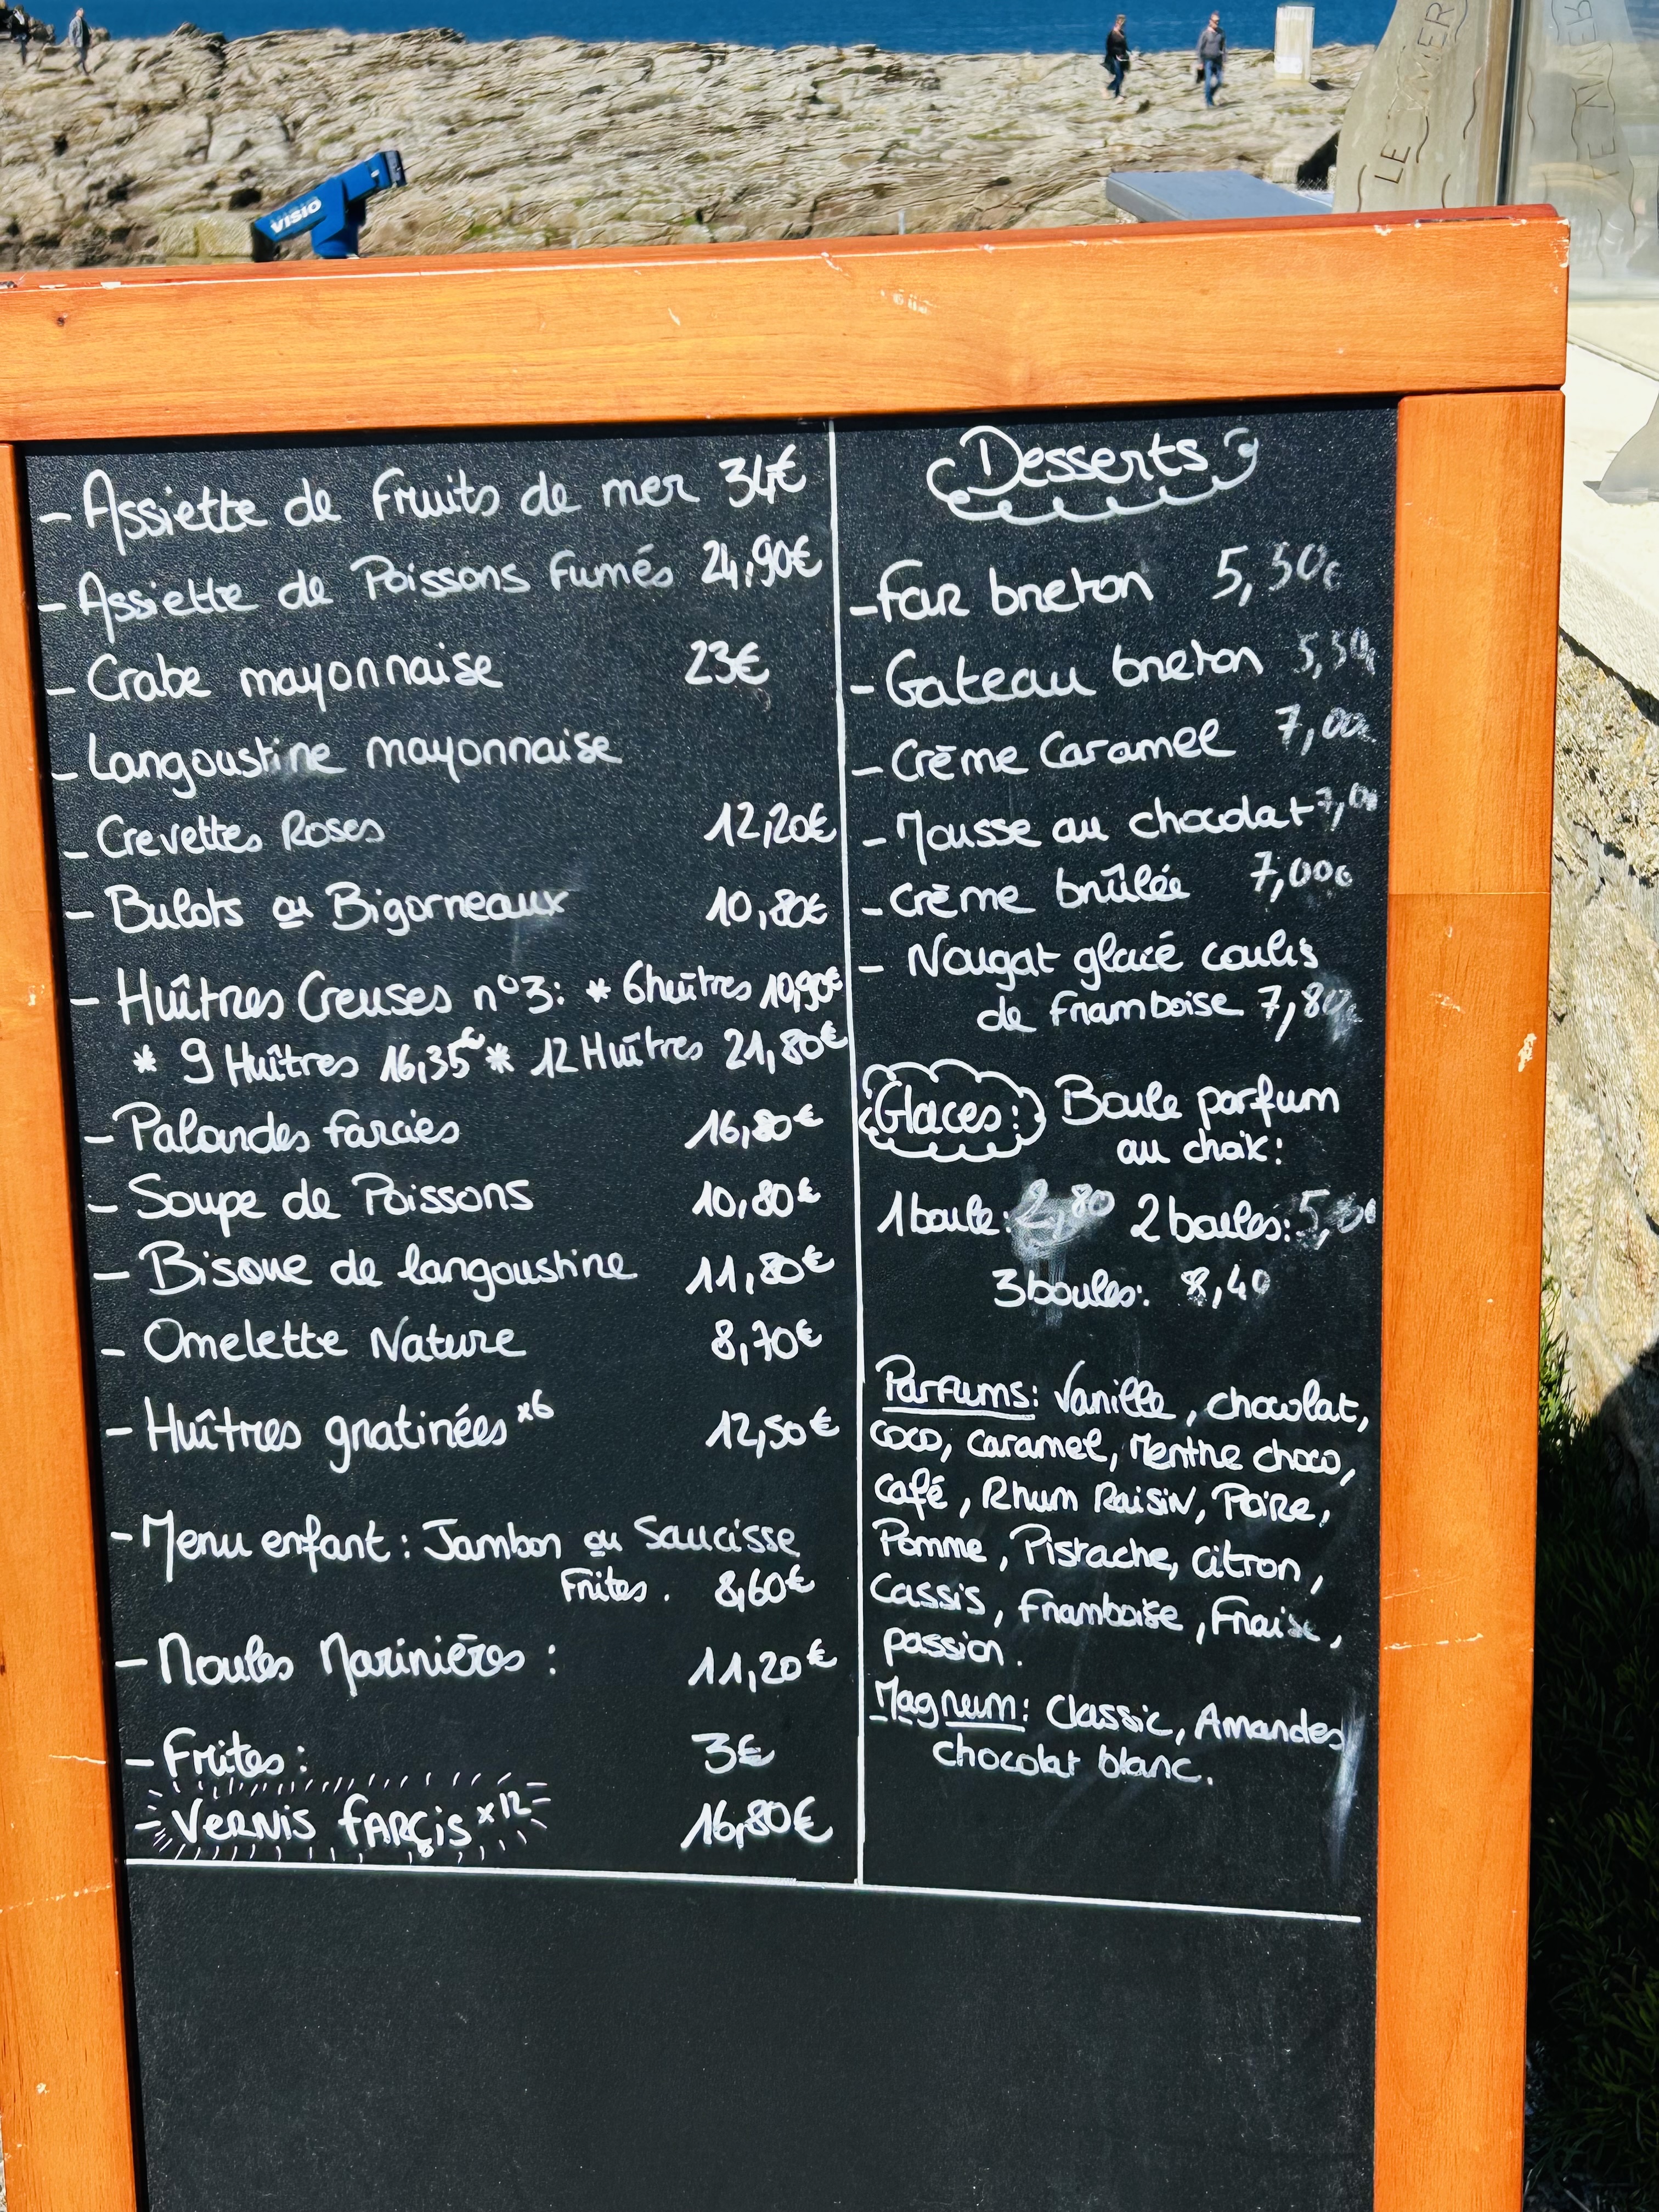 VISIO
LE MER
- Assiette de Fruits de mer 34€
- Assiette de Poissons Fumés 24,90€
- Crabe mayonnaise 23€
- Langoustine mayonnaise
- Crevettes Roses 12,20€
- Bulots ou Bigorneaux 10,80€
- Huîtres Creuses n°3: * 6 huîtres 10,90€
* 9 Huîtres 16,35€ * 12 Huîtres 21,80€
- Palourdes farcies 16,80€
- Soupe de Poissons 10,80€
- Bisque de langoustine 11,80€
- Omelette Nature 8,70€
- Huîtres gratinées x6 12,50€
- Menu enfant : Jambon ou Saucisse
Frites . 8,60€
- Moules Marinières : 11,20€
- Frites : 3€
- VERNIS FARÇIS x12 16,80€
Desserts
- Far breton 5,50€
- Gateau breton 5,50€
- Crème Caramel 7,00€
- Mousse au chocolat 7,00
- Crème brûlée 7,00€
- Nougat glacé coulis
de framboise 7,80€
Glaces : Boule parfum
au choix :
1 boule : 2,80 2 boules : 5,
3 boules : 8,40
Parfums : Vanille, chocolat,
coco, caramel, Menthe choco,
café, Rhum Raisin, Poire,
Pomme, Pistache, citron,
Cassis, Framboise, Fraise,
passion.
Magnum : Classic, Amandes
chocolat blanc.